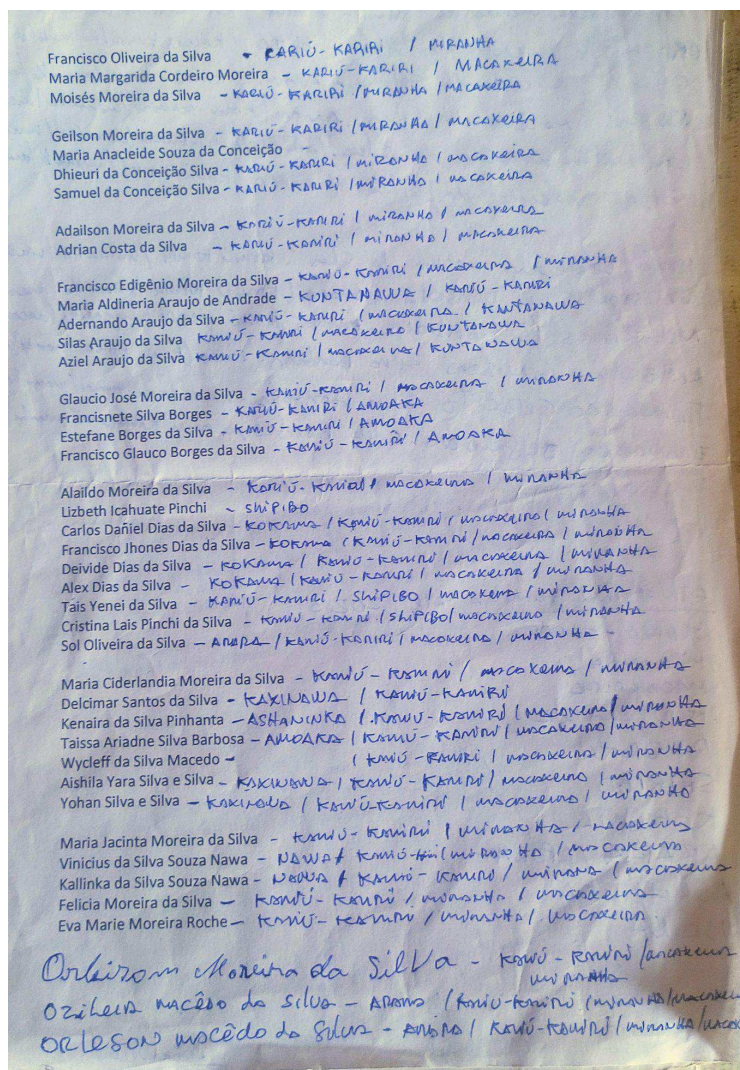 Francisco Oliveira da Silva - KARIÚ-KARIRI / MIRANHA
Maria Margarida Cordeiro Moreira - KARIÚ-KARIRI / MACAXEIRA
Moisés Moreira da Silva - KARIÚ-KARIRI / MIRANHA / MACAXEIRA
Geilson Moreira da Silva - KARIÚ-KARIRI / MIRANHA / MACAXEIRA
Maria Anacleide Souza da Conceição -
Dhieuri da Conceição Silva - KARIÚ-KARIRI / MIRANHA / MACAXEIRA
Samuel da Conceição Silva - KARIÚ-KARIRI / MIRANHA / MACAXEIRA
Adailson Moreira da Silva - KARIÚ-KARIRI / MIRANHA / MACAXEIRA
Adrian Costa da Silva - KARIÚ-KARIRI / MIRANHA / MACAXEIRA
Francisco Edigênio Moreira da Silva - KARIÚ-KARIRI / MACAXEIRA / MIRANHA
Maria Aldineria Araujo de Andrade - KUNTANAWA / KARIÚ-KARIRI
Adernando Araujo da Silva - KARIÚ-KARIRI / MACAXEIRA / KANTANAWA
Silas Araujo da Silva KARIÚ-KARIRI / MACAXEIRA / KUNTANAWA
Aziel Araujo da Silva KARIÚ-KARIRI / MACAXEIRA / KUNTANAWA
Glaucio José Moreira da Silva - KARIÚ-KARIRI / MACAXEIRA / MIRANHA
Francisnete Silva Borges - KARIÚ-KARIRI / AMOAKA
Estefane Borges da Silva - KARIÚ-KARIRI / AMOAKA
Francisco Glauco Borges da Silva - KARIÚ-KARIRI / AMOAKA
Alaildo Moreira da Silva - KARIÚ-KARIRI / MACAXEIRA / MIRANHA
Lizbeth Icahuate Pinchi - SHIPIBO
Carlos Dañiel Dias da Silva - KOKAMA / KARIÚ-KARIRI / MACAXEIRA / MIRANHA
Francisco Jhones Dias da Silva - KOKAMA / KARIÚ-KARIRI / MACAXEIRA / MIRANHA
Deivide Dias da Silva - KOKAMA / KARIÚ-KARIRI / MACAXEIRA / MIRANHA
Alex Dias da Silva - KOKAMA / KARIÚ-KARIRI / MACAXEIRA / MIRANHA
Tais Yenei da Silva - KARIÚ-KARIRI / SHIPIBO / MACAXEIRA / MIRANHA
Cristina Lais Pinchi da Silva - KARIÚ-KARIRI / SHIPIBO / MACAXEIRA / MIRANHA
Sol Oliveira da Silva - ARARA / KARIÚ-KARIRI / MACAXEIRA / MIRANHA -
Maria Ciderlandia Moreira da Silva - KARIÚ-KARIRI / MACAXEIRA / MIRANHA
Delcimar Santos da Silva - KAXINAWA / KARIÚ-KARIRI
Kenaira da Silva Pinhanta - ASHANINKA / KARIÚ-KARIRI / MACAXEIRA / MIRANHA
Taissa Ariadne Silva Barbosa - AMOAKA / KARIÚ-KARIRI / MACAXEIRA / MIRANHA
Wycleff da Silva Macedo - / KARIÚ-KARIRI / MACAXEIRA / MIRANHA
Aishila Yara Silva e Silva - KAXINAWA / KARIÚ-KARIRI / MACAXEIRA / MIRANHA
Yohan Silva e Silva - KAXINAWA / KARIÚ-KARIRI / MACAXEIRA / MIRANHA
Maria Jacinta Moreira da Silva - KARIÚ-KARIRI / MIRANHA / MACAXEIRA
Vinicius da Silva Souza Nawa - NAWA / KARIÚ- / MIRANHA / MACAXEIRA
Kallinka da Silva Souza Nawa - NAWA / KARIÚ-KARIRI / MIRANA / MACAXEIRA
Felicia Moreira da Silva - KARIÚ-KARIRI / MIRANHA / MACAXEIRA
Eva Marie Moreira Roche - KARIÚ-KARIRI / MIRANHA / MACAXEIRA
Moreira da SilVa - KARIÚ-KARIRI / MACAXEIRA
MIRANHA
OZiLeiA MACÊDO da SilVA - ARARA / KARIÚ-KARIRI / MIRANHA /
ORLESON MACÊDO da Silva - ARARA / KARIÚ-KARIRI / MIRANHA /